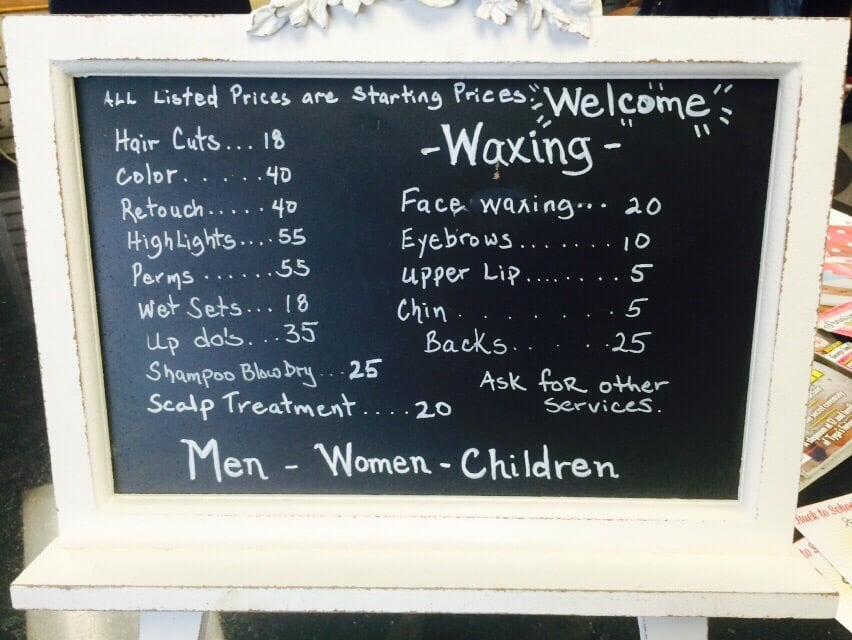 ALL Listed Prices are Starting Prices
Welcome
Hair Cuts... 18
Color...... 40
Retouch..... 40
HighLights.... 55
Perms ...... 55
Wet Sets... 18
Up do's... 35
Shampoo Blow Dry ... 25
Scalp Treatment .... 20
- Waxing -
Face waxing... 20
Eyebrows....... 10
Upper Lip........ 5
Chin ........ 5
Backs..... 25
Ask for other
Services.
Men - Women - Children
Back to School